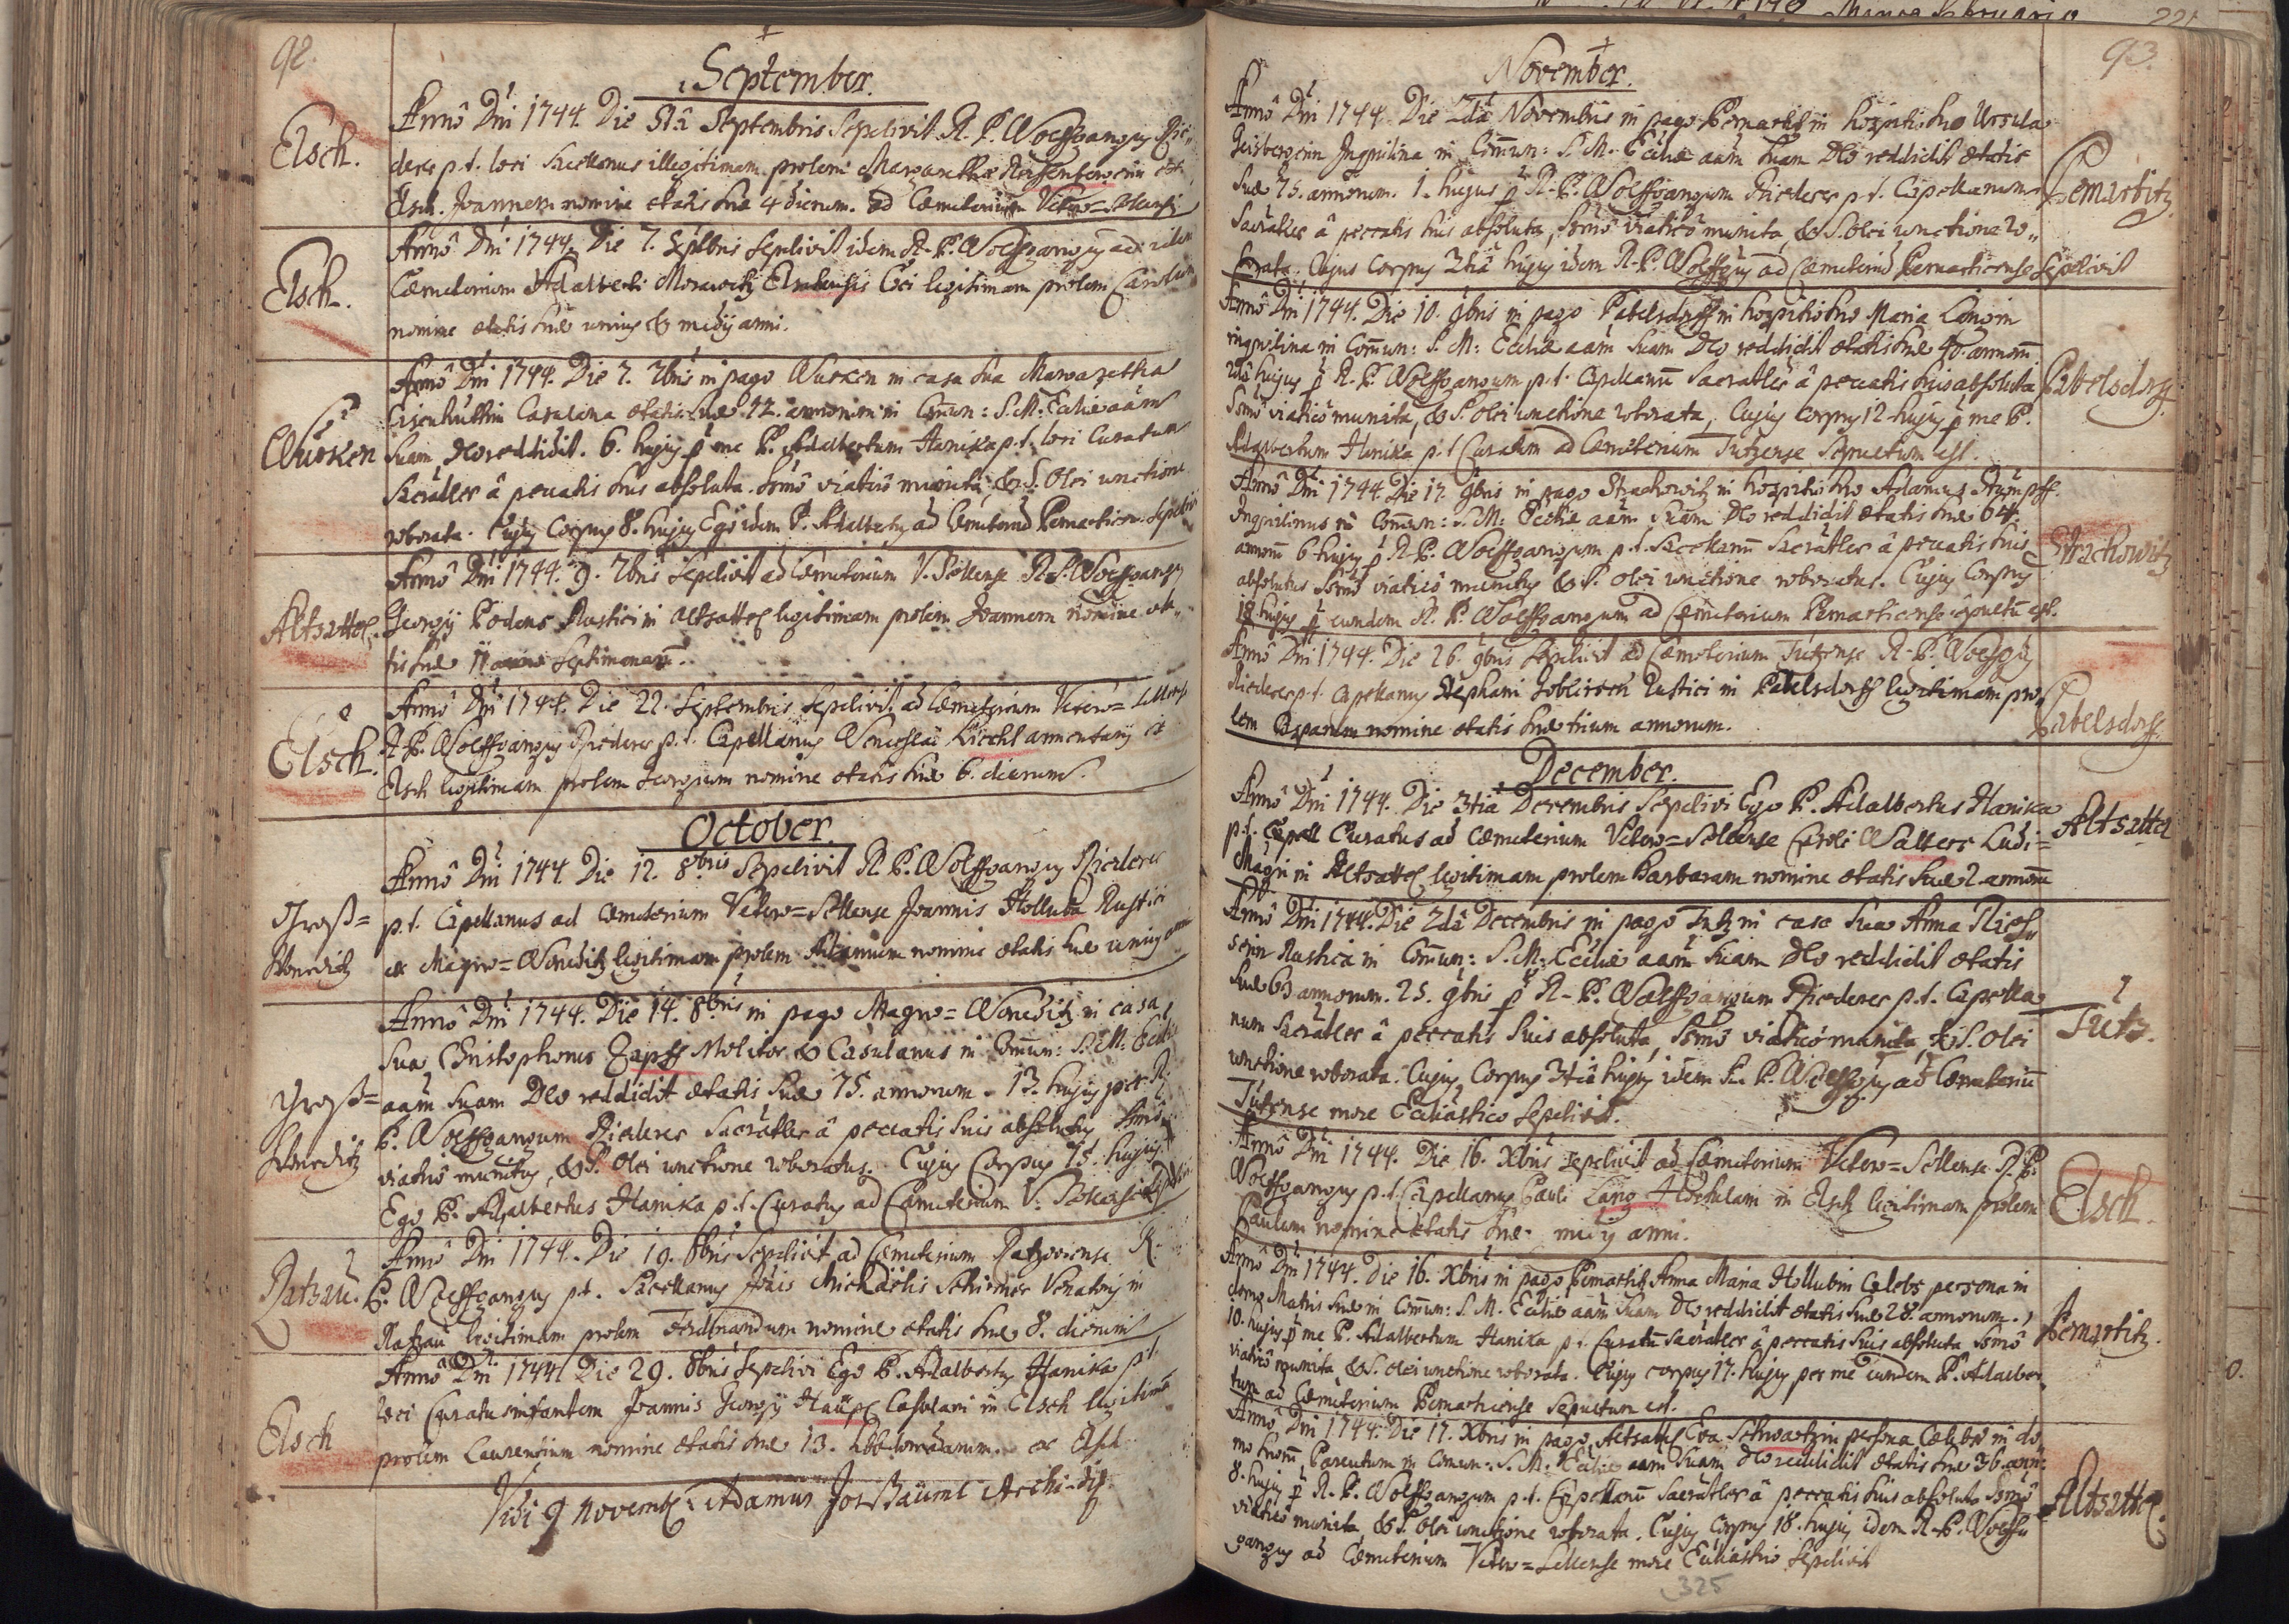 92.
September.
Elsch.
Annô Dni 1744. Die 5tâ Septembris Sepelivit R. P. Wolffgangus Rie-
derer p. t. loci Sacellanus illegitimam prolem Margarethæ
Elsch. Joannem nomine ætatis suæ 4 dierum. ad Cœmeterium Vetero-
Elsch.
Annô Dni 1744. Die 7. Septbris Sepelivit idem R. P. Wolffgangus ad idem
Cœmeterium Adalberti Morawetz Elschensis legitimam prolem
nomine ætatis suæ unius & medij anni.
Wurken
Annô Dni 1744. Die 7. 7bris in pago Wurken in casa sua Margaretha
Eisenhuttin Casulana ætatis suæ 72. annorum in Com̄un: S. M. Ecclæ aām
Suam Deo reddidit. 6. hujus p me P. Adalbertum Hanika p. t. loci Curatum
Sacratler â peccatis suis absoluta. somô viaticô munita, & S. Olei unctione
roborata. Cujus Corpus 8. hujus Ego idem P. Adalbertus ad Cœmeteriū Pernarticen: sepelivi
Altzattel.
Annô Dni 1744. 9. 7bris Sepelivit ad Cœmeterium V. Sellense R. P. Wolffgangus
Georgij Rustici in Altzattel legitimam prolem Joannem nomine æta-
tis suæ 11 Septimanarū.
Elsch.
Annô Dni 1744. Die 22. Septembris Sepelivit ad Cœmeterium Vetero-
R. P. Wolffgangus Riederer p. t. Capellanus Wenceslai armentarij ex
Elsch legitimam prolem Georgium nomine ætatis suæ 6. dierum.
October.
Groß=
Woneditz
Annô Dni 1744. Die 12. 8bris Sepelivit R. P. Wolffgangus Riederer
p. t. Capellanus ad Cœmeterium Vetero=Sellense Joannis Holluba Rustici
ex Magno=Woneditz legitimam prolem nomine ætatis suæ unius anni
Groß=
Woneditz
Annô Dni 1744. Die 14. 8bris in pago Magno=Woneditz in casa
sua Christophorus Zapff Molitor & Casulanus in Com̄un: S. M. Ecclæ
aām suam Deo reddidit ætatis suæ 75. annorum. 13. hujus per R.
P. Wolffgangum Riederer Sacratler â peccatis suis absolutus somô
viaticô munitus, & S. Olei unctione roboratus. Cujus Corpus 15. hujus
Ego P. Adalbertus Hanika p. t. Curatus ad Cœmeterium V.
Ratzau.
Annô Dni 1744. Die 19. 8bris Sepelivit ad Cœmeterium Ratzoviense R.
P. Wolffgangus p. t. Sacellanus Michaëlis Schirmer Venatoris in
Ratzau legitimam prolem Ferdinandum nomine ætatis suæ 8. dierum
Elsch
Annô Dni 1744 Die 29. 8bris Sepelivi Ego P. Adalbertus Hanika p. t.
loci Curatus infantem Joannis Georgij Casulani in Elsch legitimā
prolem Laurentium nomine ætatis suæ 13. hebdomadarum. ex Elsch
Vidi 9 Novemb: Adamus Archi-dip.
93.
November.
Annô Dni 1744. Die 2dâ Novembris in pago Pernartitz in hospitio suo Ursula
Inquilina in Com̄un: S. M. Ecclæ aām suam Deo reddidit ætatis
suæ 75. annorum. 1. hujus p R. P. Wolffgangum Riederer p. t. Capellanum
Sacratler â peccatis suis absoluta, somô viaticô munita, & S. olei unctione ro-
borata. Cujus Corpus 3tiâ hujus idem R. P. Wolffgus ad Cœmeteriū Pernarticense Sepelivit
Pernartitz.
Annô Dni 1744. Die 10. 9bris in pago Pabelsdorff in hospitio suo Maria
inquilina in Com̄un: S. M: Ecclæ aām suam Deo reddidit ætatis suæ 40. annorū.
hujus p R. P. Wolffgangum p. t. Capellanū Sacratler â peccatis suis absoluta
Somô viaticô munita, & S. olei unctione roborata, Cujus Corpus 12 hujus p me P.
Adalbertum Hanika p. t. Curatum ad Cœmeterium Tutzense Sepultum est.
Pabelsdorff.
Annô Dni 1744. Die 17. 9bris in pago Strachowitz in hospitio suo Adamus Stumpff
Inquilinus in Com̄un: S. M: Ecclæ aām suam Deo reddidit ætatis suæ 64.
annorū 6 hujus p R. P. Wolffgangum p. t. Sacellanū Sacratler â peccatis suis
absolutus somô viaticô munitus & S. olei unctione roboratus. Cujus Corpus
18 hujus p eundem R. P. Wolffgangum ad Cœmeterium Pernarticense sepultū est.
Strachowitz
Annô Dni 1744. Die 26. 9bris Sepelivit ad Cœmeterium Tutzense R. P. Wolffgus
Riederer p. t. Capellanus Stephani Rustici in Pabelsdorff legitimam pro-
lem Casparum nomine ætatis suæ trium annorum.
Pabelsdorff.
December.
Annô Dni 1744. Die 3tiâ Decembris Sepelivi Ego P. Adalbertus Hanika
p. t. Curatus ad Cœmeterium Vetero=Sellense Caroli Walters Ludi=
Magri in Altzattel legitimam prolem Barbaram nomine ætatis suæ 2. annorū
Altzattel
Annô Dni 1744. Die 2dâ Decembris in pago Tutz in casa sua Anna
Rustica in Com̄un: S. M: Ecclæ aām suam Deo reddidit ætatis
suæ 63 annorum. 25. 9bris p R. P. Wolffgangum Riederer p. t. Capella-
num Sacratler â peccatis suis absoluta, somô viaticô munita, & S. olei
unctione roborata. Cujus Corpus 3tiâ hujus idem R. P. Wolffgus ad Cœmeteriū
Tutzense more Ecclesiastico sepelivit.
Tutz.
Annô Dni 1744. Die 16. Xbris sepelivit ad Cœmeterium Vetero=Sellense R. P.
Wolffgangus p. t. Capellanus Pauli Lang in Elsch legitimam prolem
Paulum nomine ætatis suæ medij anni.
Elsch.
Annô Dni 1744. Die 16. Xbris in pago Pernartitz Anna Maria Hollubin Cælebs persona in
domo Matris suæ in Com̄un: S. M. Ecclæ aām suam Deo reddidit ætatis suæ 28. annorum.
10. hujus p me P. Adalbertum Hanika p. t. Curatū Sacratler â peccatis suis absoluta somô
viaticô munita & S. olei unctione roborata. Cujus corpus 17. hujus per me eundem P. Adalber-
tum ad Cœmeterium Pernarticense sepultum est.
Pernartitz.
Annô Dni 1744. Die 17. Xbris in pago Altzattel Eva Schwartzin persona Cælebs in do-
mo suorū Parentum in Comun: S. M. Ecclæ aām suam Deo reddidit ætatis suæ 36. ann:
8. hujus p R. P. Wolffgangum p. t. Capellanū Sacratler â peccatis suis absoluta somô
viaticô munita & S. olei unctione roborata. Cujus Corpus 18. hujus idem R. P. Wolff-
gangus ad Cœmeterium Vetero=Sellense more Ecclesiastico Sepelivit
Altzattel.
325